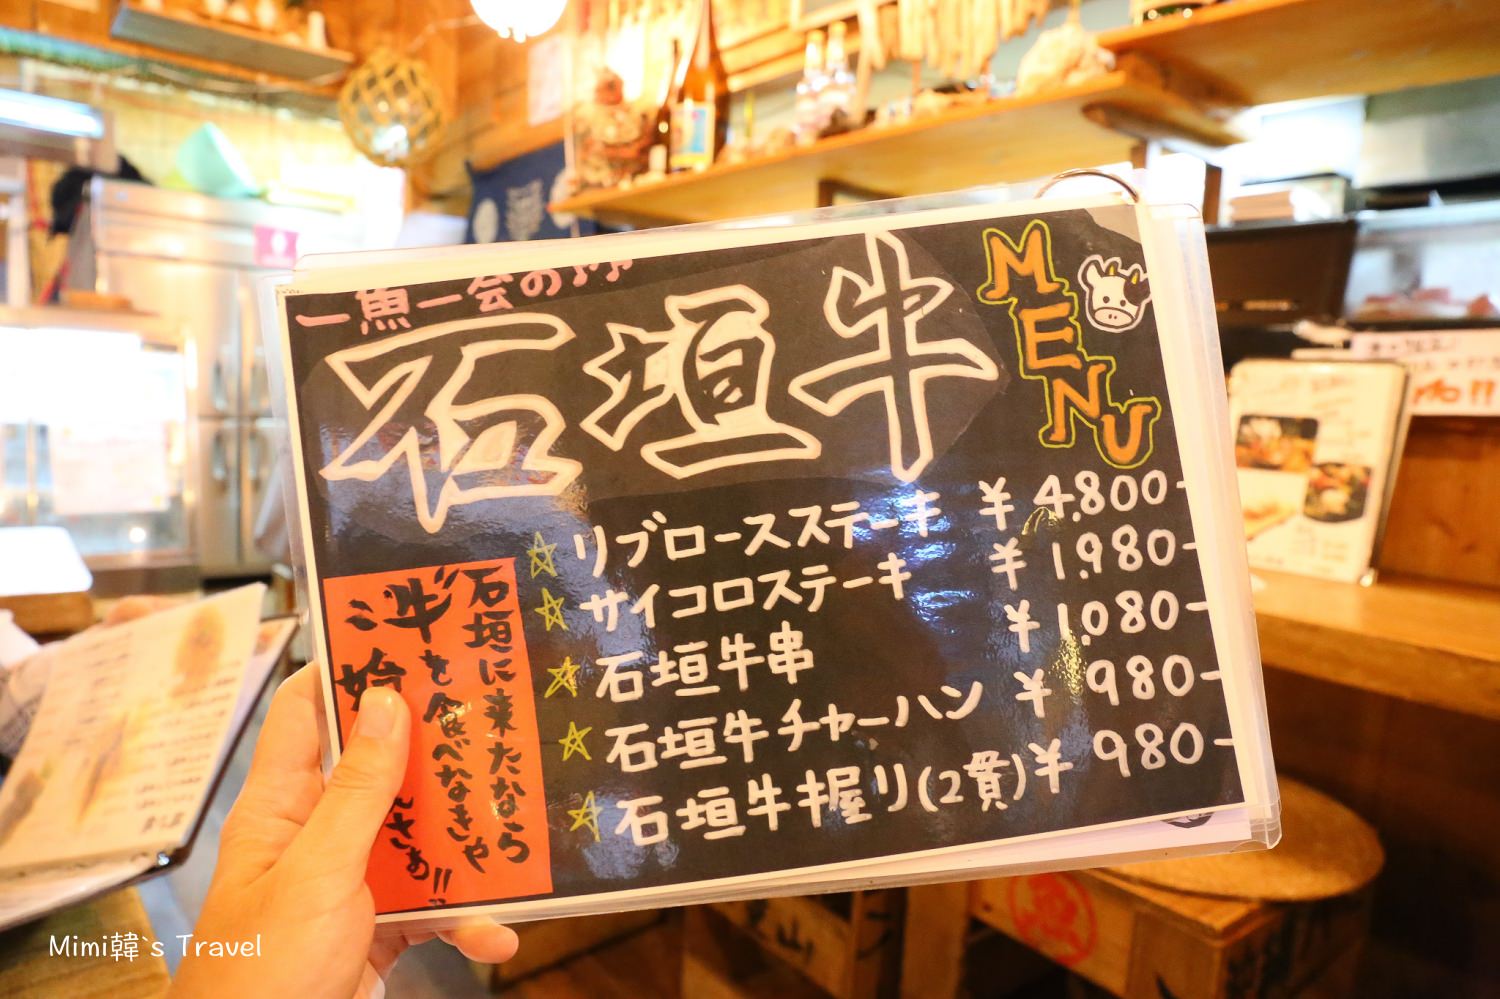 一魚一会の
石垣牛
MENU
☆ リブロースステーキ ¥4,800-
☆ サイコロステーキ ¥1,980-
☆ 石垣牛串 ¥1,080-
☆ 石垣牛チャーハン ¥980-
☆ 石垣牛握り(2貫) ¥980-
石垣に来たなら
牛を食べなきゃ
Mimi韓`s Travel